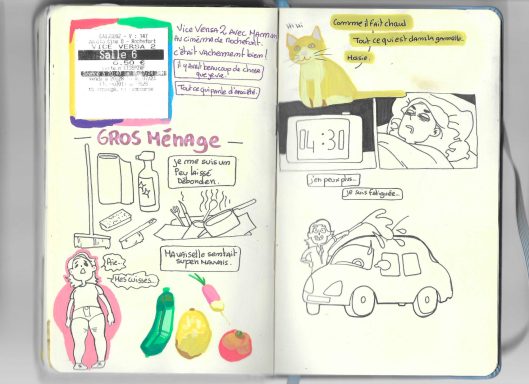 VICE VERSA 2
Salle 6
6.50 €
Vice Versa 2 avec Maman
au cinéma de Rochefort.
c'était vachement bien !
Il y avait beaucoup de chose
que je vie.
Tout ce qui parle d'anxiété.
GROS MéNAGE
Je me suis un
peu laissé
Déborder.
Ma vaiselle sentait
super mauvais.
Aïe
Mes cuisses...
Hi Hi
Comme il fait chaud
Tout ce qui est dans la gamelle.
Moisie.
04:30
J'en peux plus...
Je suis fatiguée...